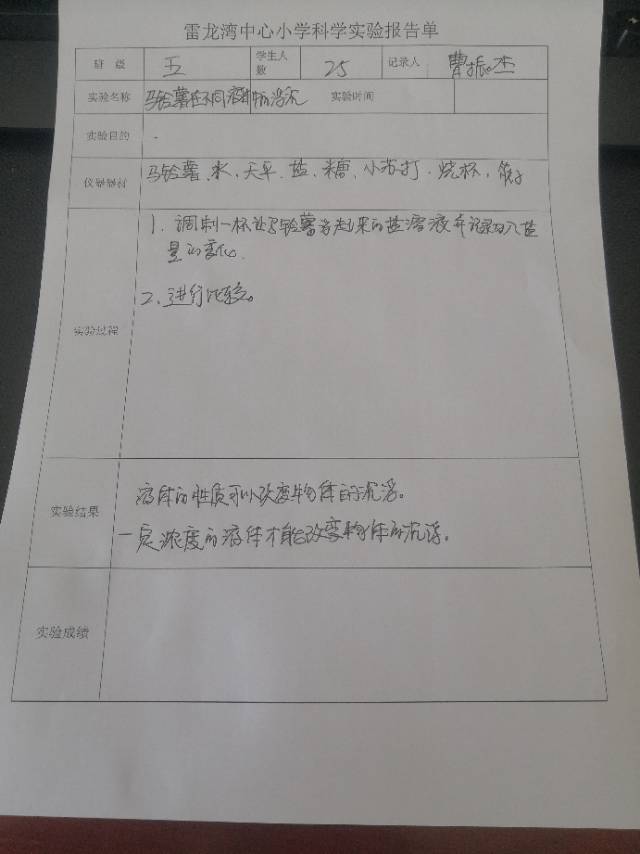 雷龙湾中心小学科学实验报告单
班 级 五 学生人数 25 记录人 曹振杰
实验名称 马铃薯在不同液体中的浮沉 实验时间
实验目的
仪器器材 马铃薯、水、天平、盐、糖、小苏打、烧杯、筷子
实验过程
1. 调制一杯让马铃薯浮起来的盐溶液并记录加入盐
量的变化.
2. 进行比较。
实验结果
液体的性质可以改变物体的沉浮。
一定浓度的液体才能改变物体的沉浮。
实验成绩